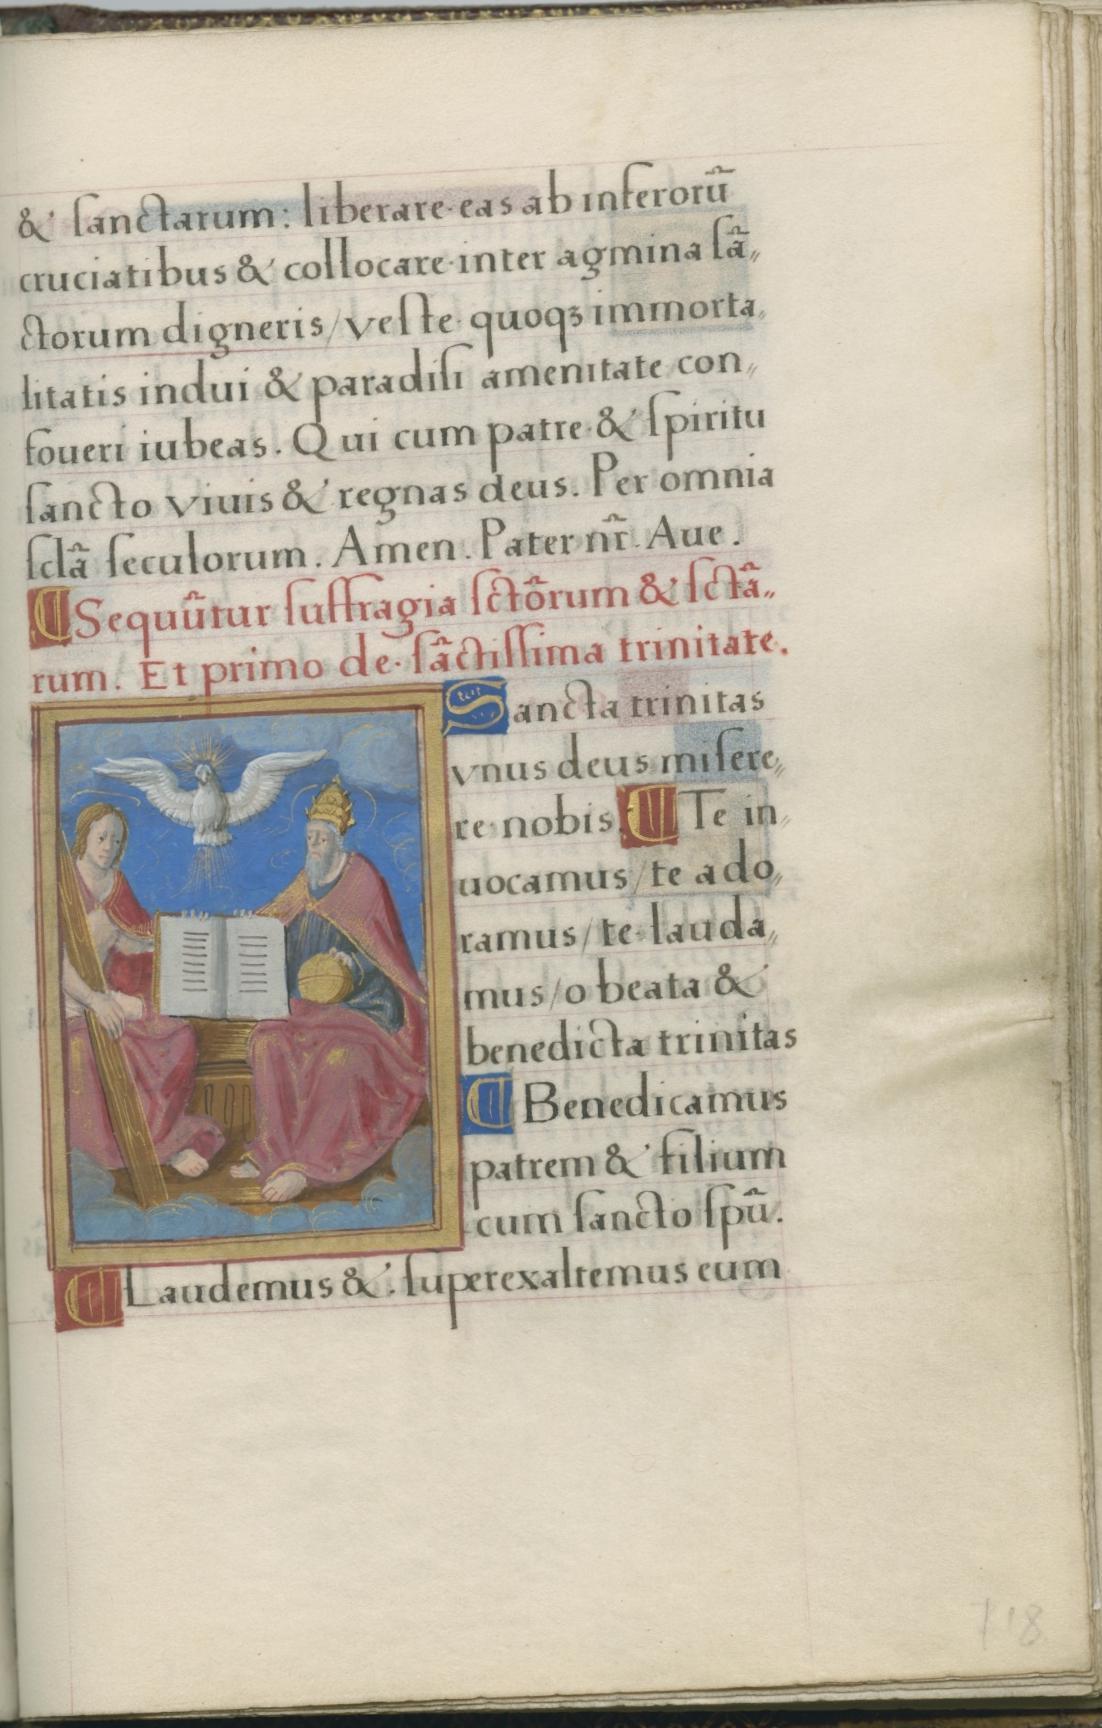 & ſanctarum: liberare eas ab inferorũ
cruciatibus & collocare inter agmina ſã„
ctorum digneris/ veſte quoqꝫ immorta„
litatis indui & paradiſi amenitate con„
foueri iubeas. Qui cum patre & ſpiritu
ſancto viuis & regnas deus. Per omnia
ſclã ſeculorum. Amen. Pater nr̃. Aue.
Sequũtur ſuffragia ſctõrum & ſctã„
rum. Et primo de ſãctiſſima trinitate.
Sancta trinitas
vnus deus miſere„
re nobis. Te in„
uocamus/ te ado„
ramus/ te lauda„
mus/ o beata &
benedicta trinitas
Benedicamus
patrem & filium
cum ſancto ſpũ.
Laudemus & ſuperexaltemus eum
718